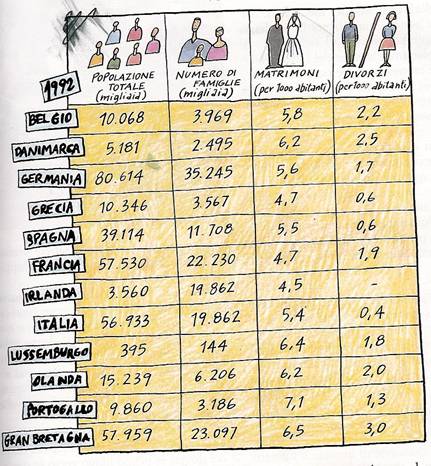 1992
POPOLAZIONE TOTALE (migliaia)
NUMERO DI FAMIGLIE (migliaia)
MATRIMONI (per 1000 abitanti)
DIVORZI (per 1000 abitanti)
BELGIO 10.068 3.969 5,8 2,2
DANIMARCA 5.181 2.495 6,2 2,5
GERMANIA 80.614 35.245 5,6 1,7
GRECIA 10.346 3.567 4,7 0,6
SPAGNA 39.114 11.708 5,5 0,6
FRANCIA 57.530 22.230 4,7 1,9
IRLANDA 3.560 19.862 4,5 -
ITALIA 56.933 19.862 5,4 0,4
LUSSEMBURGO 395 144 6,4 1,8
OLANDA 15.239 6.206 6,2 2,0
PORTOGALLO 9.860 3.186 7,1 1,3
GRAN BRETAGNA 57.959 23.097 6,5 3,0